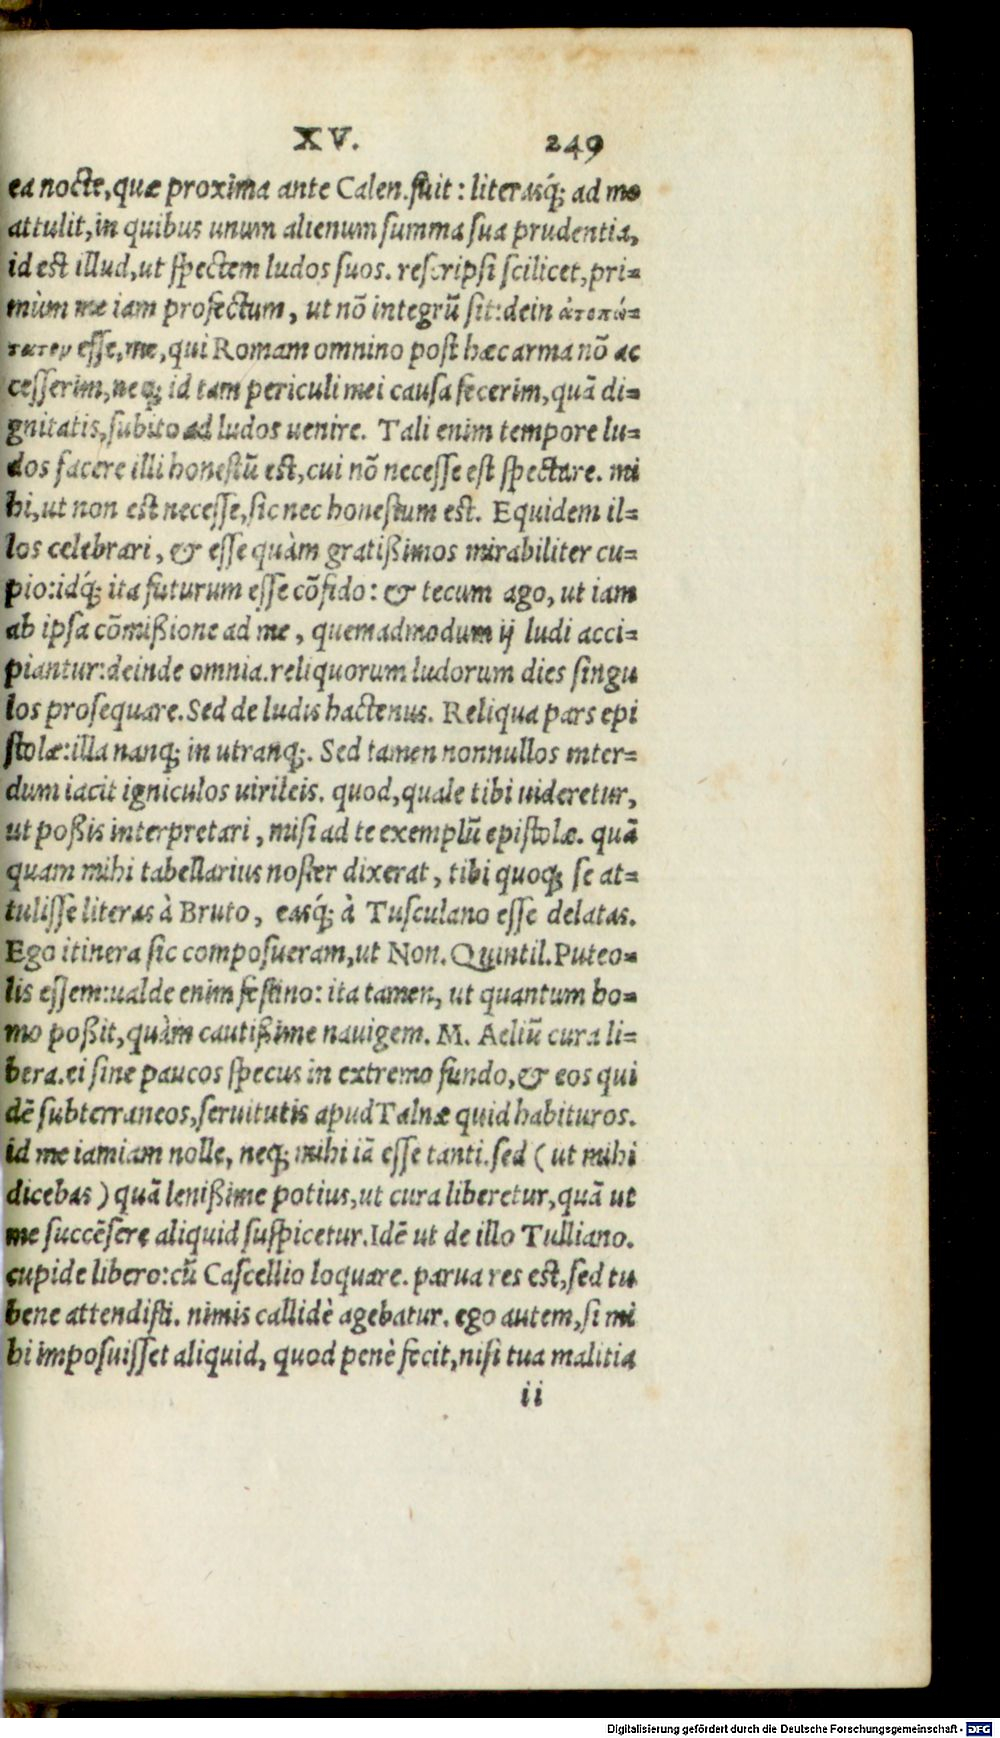 XV. 249
ea nocte, quæ proxima ante Calen. fuit: literasq́; ad me
attulit, in quibus unum alienum summa sua prudentia,
id est illud, ut spectem ludos suos. rescripsi scilicet, pri=
mùm me iam profectum, ut nõ integrũ sit: dein ἀτοπώ=
τατον esse, me, qui Romam omnino post hæc arma nõ ac
cesserim, neq; id tam periculi mei causa fecerim, quã di=
gnitatis, subito ad ludos uenire. Tali enim tempore lu=
dos facere illi honestũ est, cui nõ necesse est spectare. mi
hi, ut non est necesse, sic nec honestum est. Equidem il=
los celebrari, & esse quàm gratißimos mirabiliter cu=
pio: idq́; ita futurum esse cõfido: & tecum ago, ut iam
ab ipsa cõmißione ad me, quemadmodum ij ludi acci=
piantur: deinde omnia. reliquorum ludorum dies singu
los prosequare. Sed de ludis hactenus. Reliqua pars epi
stolæ: illa nanq; in utranq;. Sed tamen nonnullos inter=
dum iacit igniculos uirileis. quod, quale tibi uideretur,
ut poßis interpretari, misi ad te exemplũ epistolæ. quã
quam mihi tabellarius noster dixerat, tibi quoq; se at=
tulisse literas à Bruto, easq́; à Tusculano esse delatas.
Ego itinera sic composueram, ut Non. Quintil. Puteo=
lis essem: ualde enim festino: ita tamen, ut quantum ho=
mo poßit, quàm cautißime nauigem. M. Aeliũ cura li=
bera. ei sine paucos specus in extremo fundo, & eos qui
dẽ subterraneos, seruitutis apud Talnæ quid habituros.
id me iamiam nolle, neq; mihi iã esse tanti. sed (ut mihi
dicebas) quã lenißime potius, ut cura liberetur, quã ut
me succẽsere aliquid suspicetur. Idẽ ut de illo Tulliano.
cupide libero: cũ Cascellio loquare. parua res est, sed tu
bene attendisti. nimis callidè agebatur. ego autem, si mi
hi imposuisset aliquid, quod penè fecit, nisi tua malitia
ii
Digitalisierung gefördert durch die Deutsche Forschungsgemeinschaft - DFG